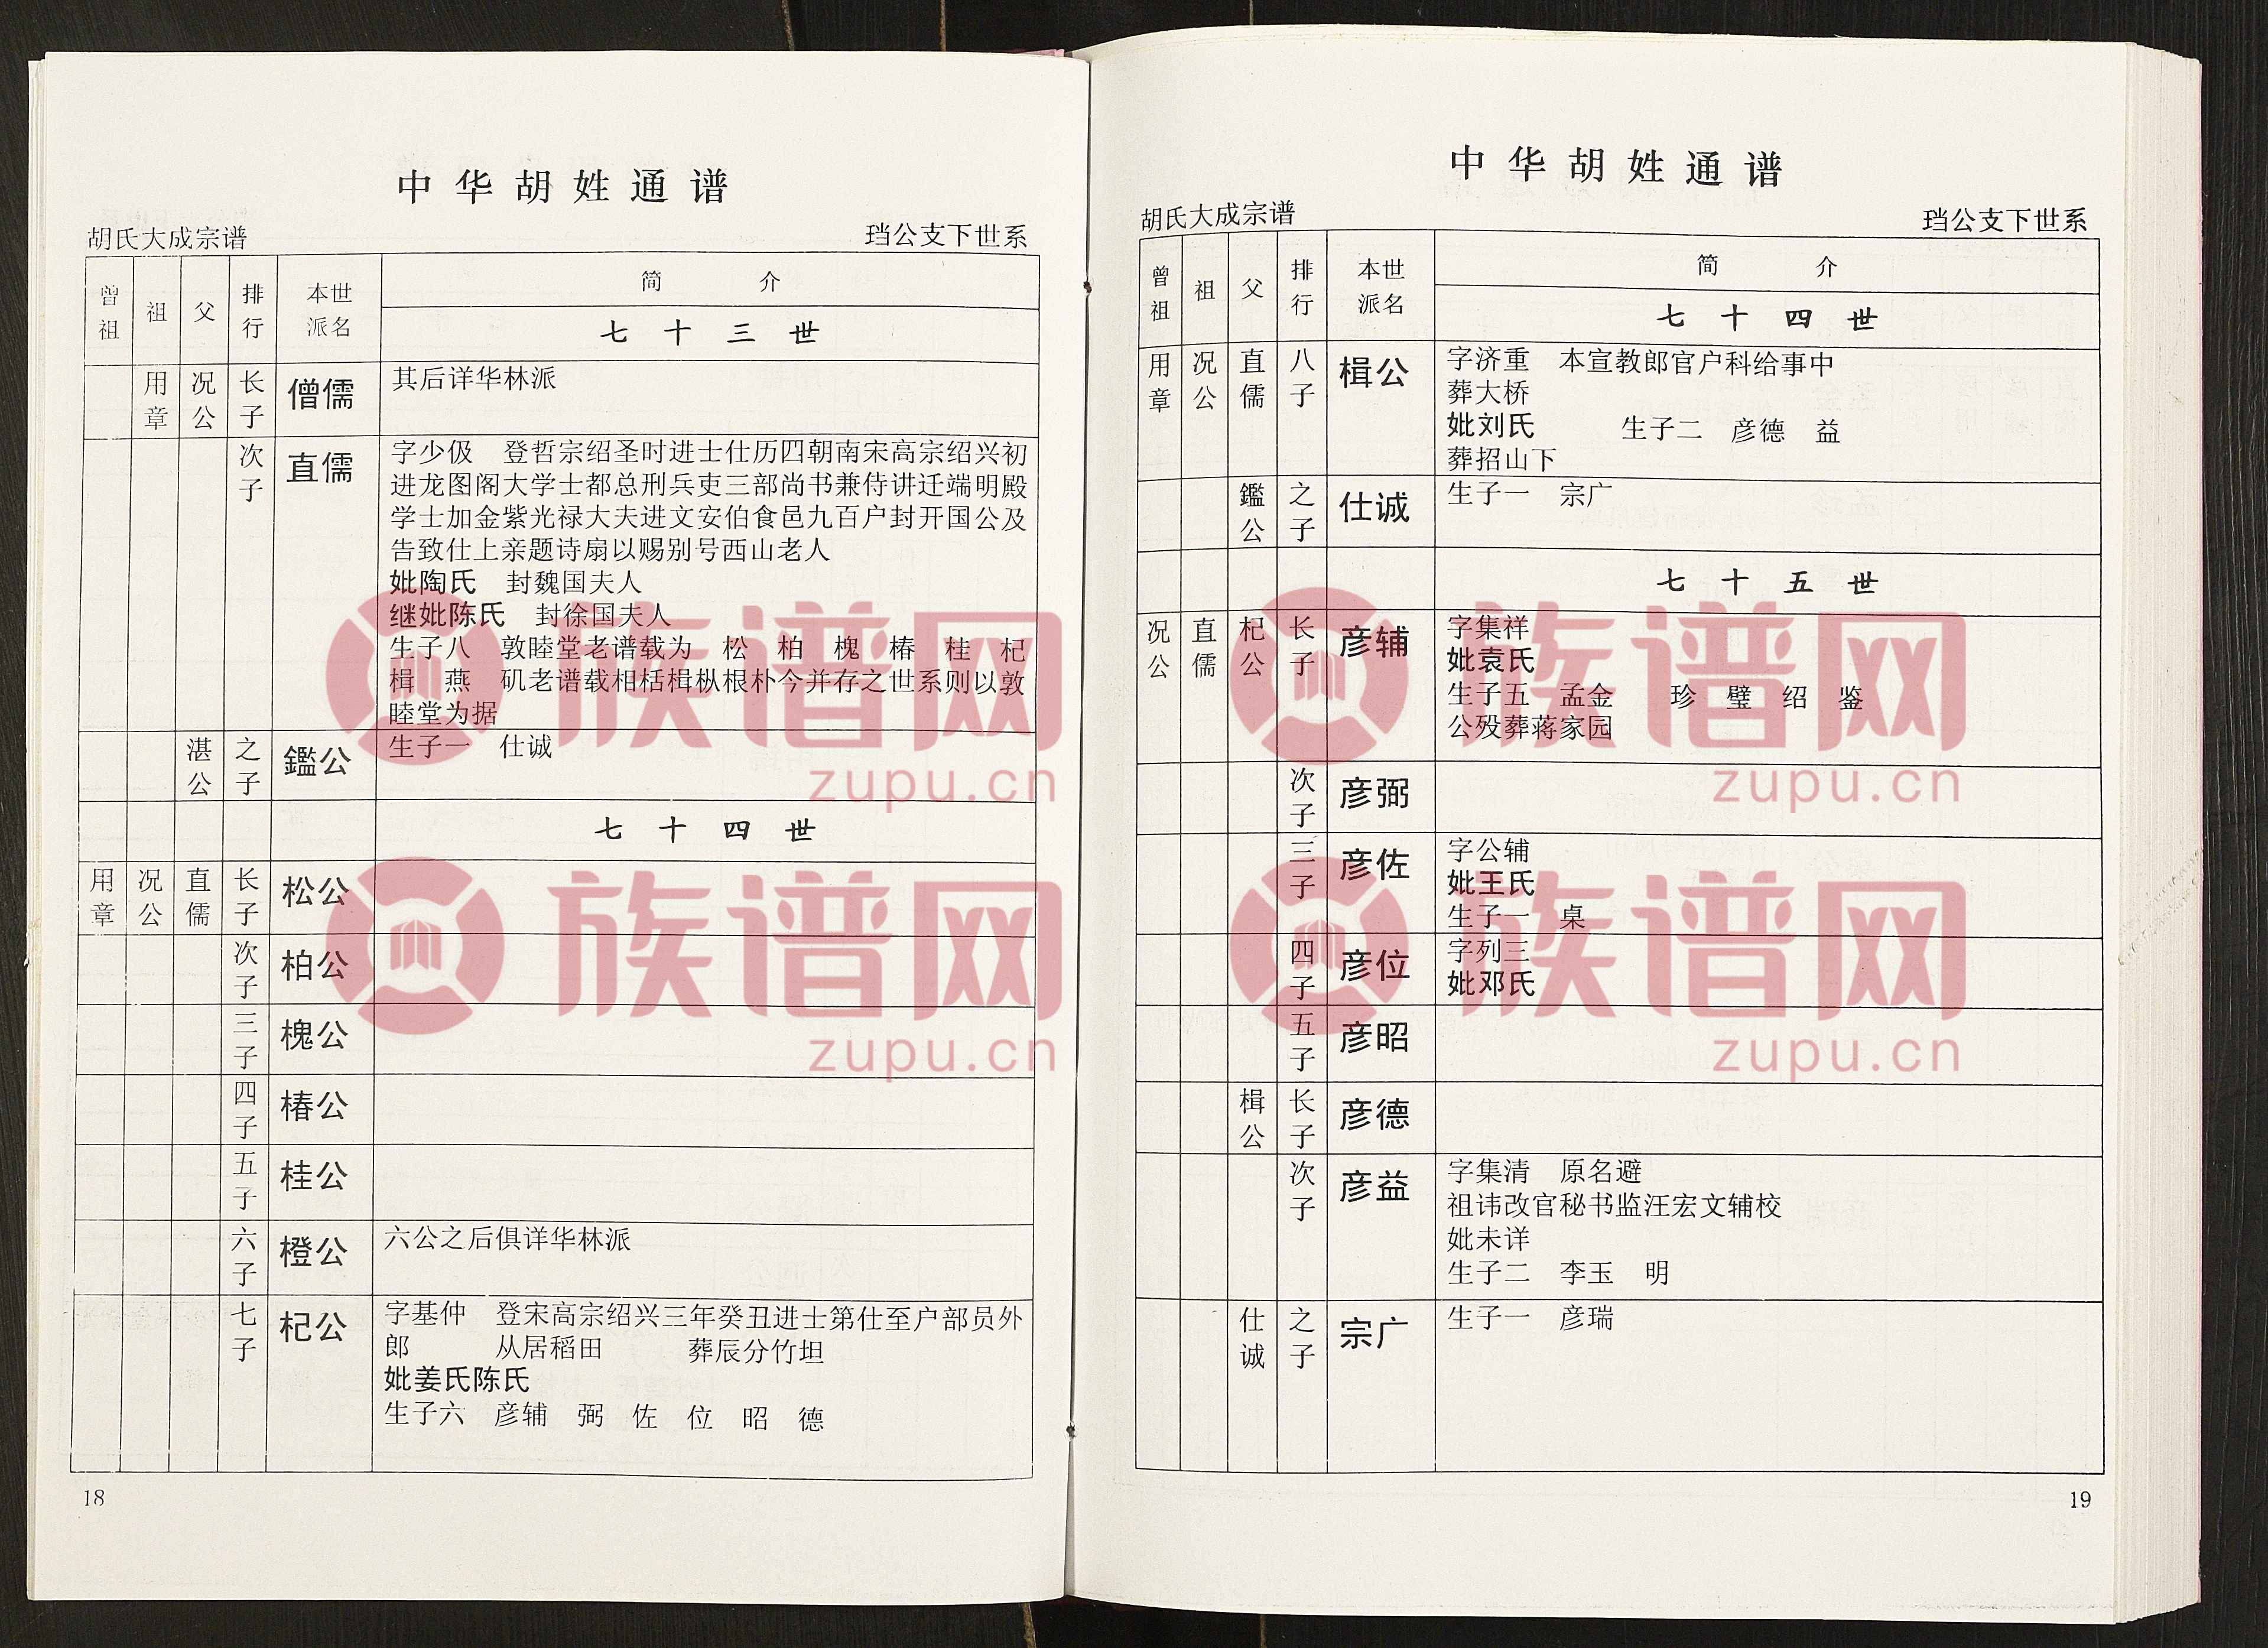 中华胡姓通谱
胡氏大成宗谱 珰公支下世系
曾祖 祖 父 排行 本世派名 简介
七十三世
用章 况公 长子 僧儒 其后详华林派
次子 直儒 字少伋 登哲宗绍圣时进士仕历四朝南宋高宗绍兴初
进龙图阁大学士都总刑兵吏三部尚书兼侍讲迁端明殿
学士加金紫光禄大夫进文安伯食邑九百户封开国公及
告致仕上亲题诗扇以赐别号西山老人
妣陶氏 封魏国夫人
继妣陈氏 封徐国夫人
生子八 敦睦堂老谱载为 松 柏 槐 椿 桂 杞
楫 燕 矶老谱载相栝楫枞根朴今并存之世系则以敦
睦堂为据
湛公 之子 鑑公 生子一 仕诚
七十四世
用章 况公 直儒 长子 松公
次子 柏公
三子 槐公
四子 椿公
五子 桂公
六子 橙公 六公之后俱详华林派
七子 杞公 字基仲 登宋高宗绍兴三年癸丑进士第仕至户部员外
郎 从居稻田 葬辰分竹坦
妣姜氏陈氏
生子六 彦辅 弼 佐 位 昭 德
18
中华胡姓通谱
胡氏大成宗谱 珰公支下世系
曾祖 祖 父 排行 本世派名 简介
七十四世
用章 况公 直儒 八子 楫公 字济重 本宣教郎官户科给事中
葬大桥
妣刘氏 生子二 彦德 益
葬招山下
鑑公 之子 仕诚 生子一 宗广
七十五世
况公 直儒 杞公 长子 彦辅 字集祥
妣袁氏
生子五 孟金 珍 璧 绍 鉴
公殁葬蒋家园
次子 彦弼
三子 彦佐 字公辅
妣王氏
生子一 桌
四子 彦位 字列三
妣邓氏
五子 彦昭
楫公 长子 彦德
次子 彦益 字集清 原名避
祖讳改官秘书监汪宏文辅校
妣未详
生子二 李玉 明
仕诚 之子 宗广 生子一 彦瑞
19
族谱网
zupu.cn
族谱网
zupu.cn
族谱网
zupu.cn
族谱网
zupu.cn